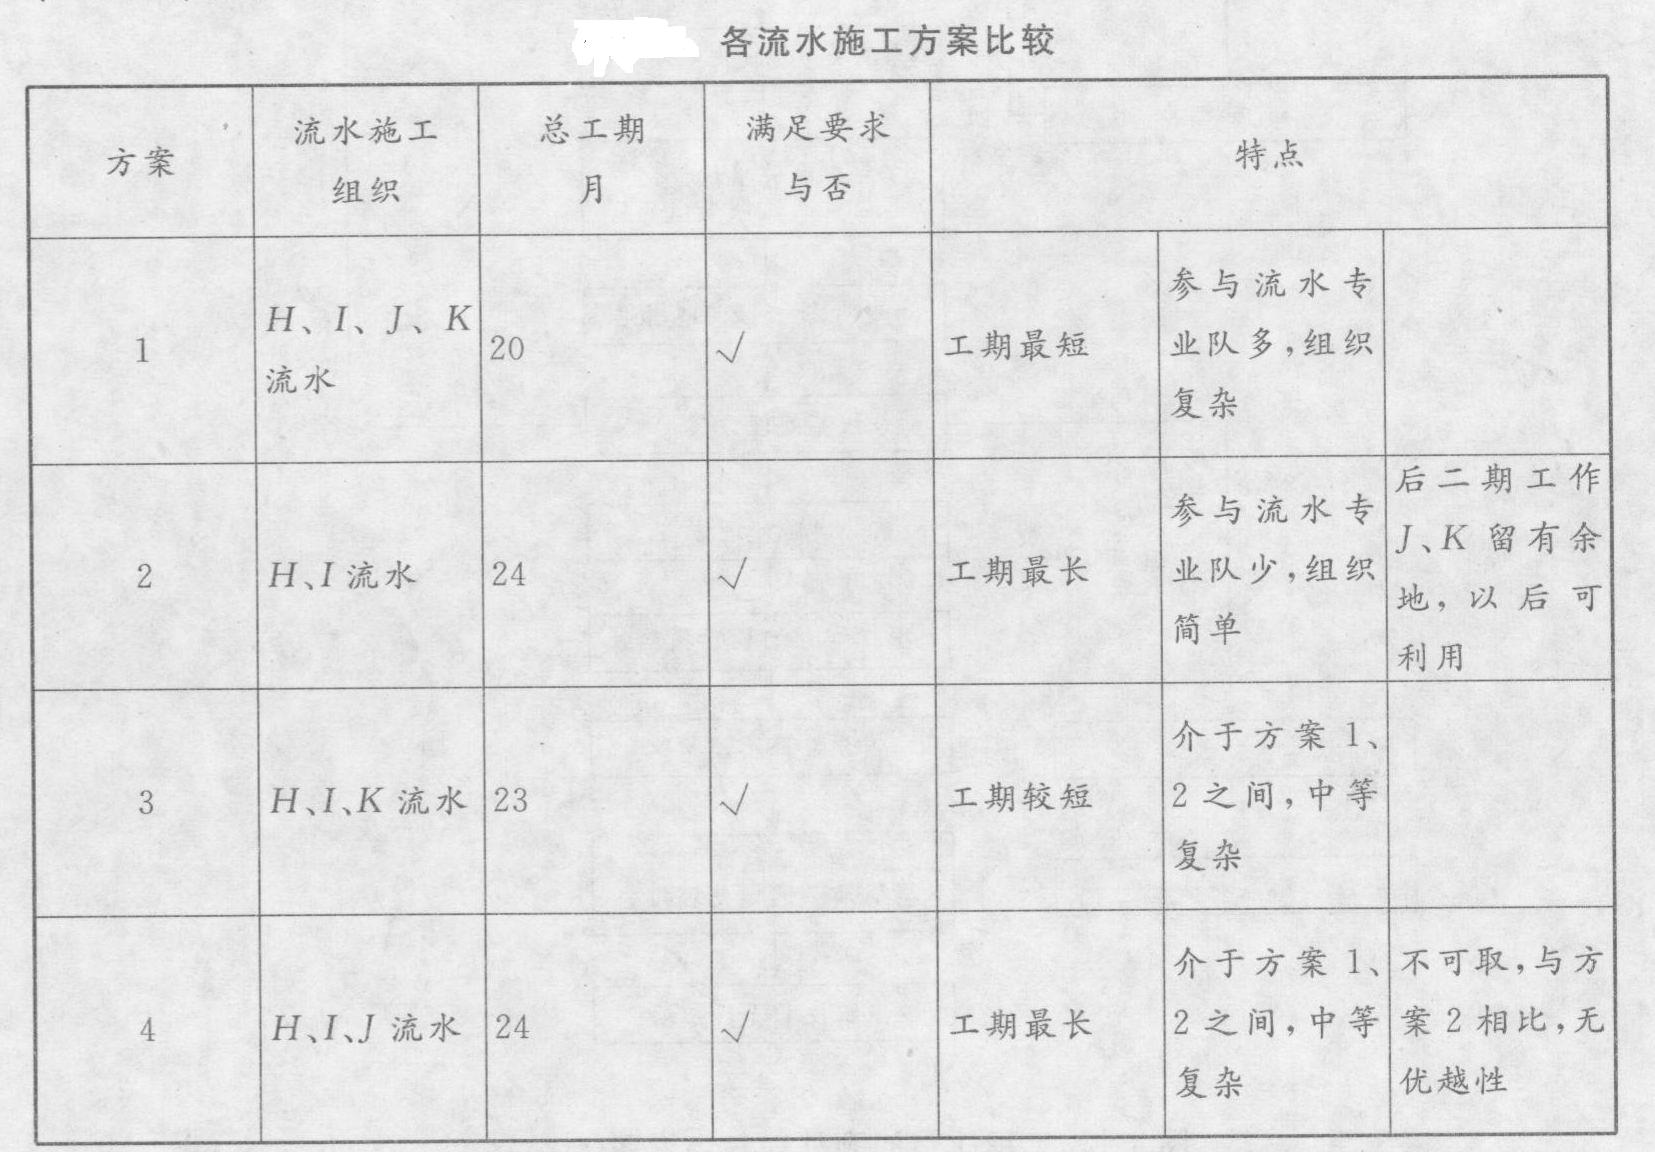 各流水施工方案比较
方案
流水施工
组织
总工期
月
满足要求
与否
特点
1
H、I、J、K
流水
20
√
工期最短
参与流水专
业队多,组织
复杂
2
H、I流水
24
√
工期最长
参与流水专
业队少,组织
简单
后二期工作
J、K留有余
地,以后可
利用
3
H、I、K流水
23
√
工期较短
介于方案1、
2之间,中等
复杂
4
H、I、J流水
24
√
工期最长
介于方案1、
2之间,中等
复杂
不可取,与方
案2相比,无
优越性